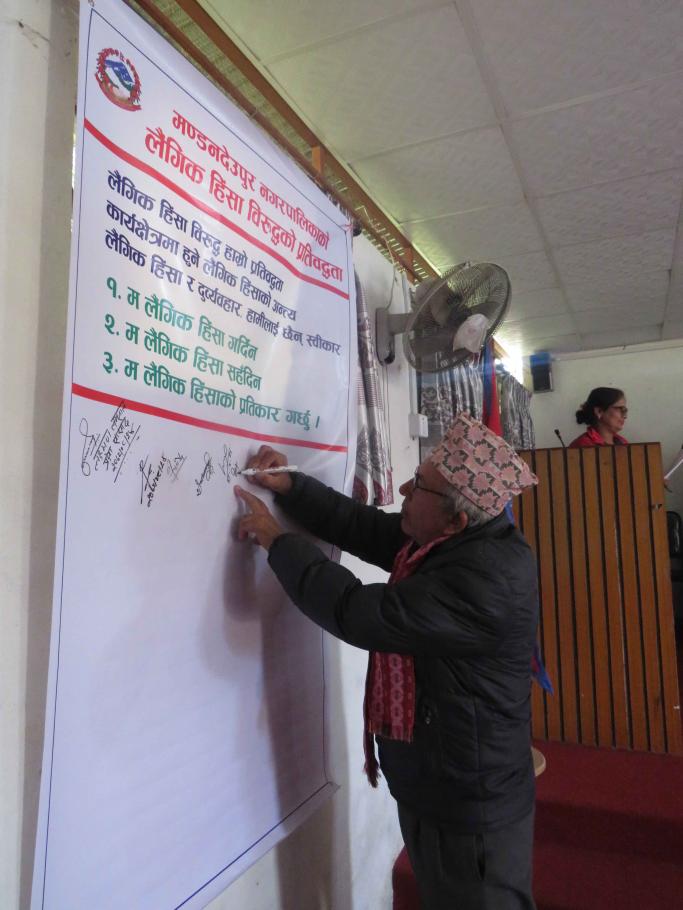 मण्डनदेउपुर नगरपालिकाको
लैगिक हिंसा विरुद्धको प्रतिवद्धता
लैगिक हिंसा विरुद्ध हाम्रो प्रतिवद्धता
कार्यक्षेत्रमा हुने लैगिक हिंसाको अन्त्य
लैगिक हिंसा र दुर्व्यवहार, हामीलाई छैन् स्वीकार
१. म लैगिक हिंसा गर्दिन
२. म लैगिक हिंसा सहँदिन
३. म लैगिक हिंसाको प्रतिकार गर्छु ।